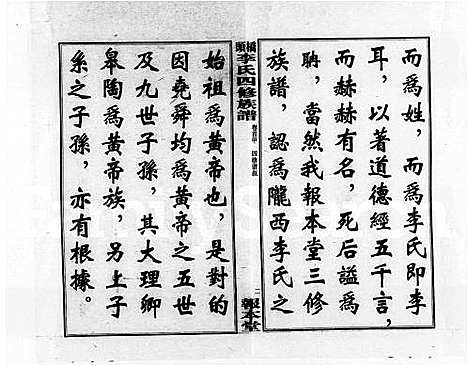 而為姓，而為李氏即李
耳，以著道德經五千言，
而赫赫有名，死后謚為
聃，當然我報本堂三修
族譜，認為隴西李氏之
橋頭李氏四修族譜
二
報本堂
始祖為黃帝也，是對的
因堯舜均為黃帝之五世
及九世子孫，其大理卿
皋陶為黃帝族，另上子
系之子孫，亦有根據。